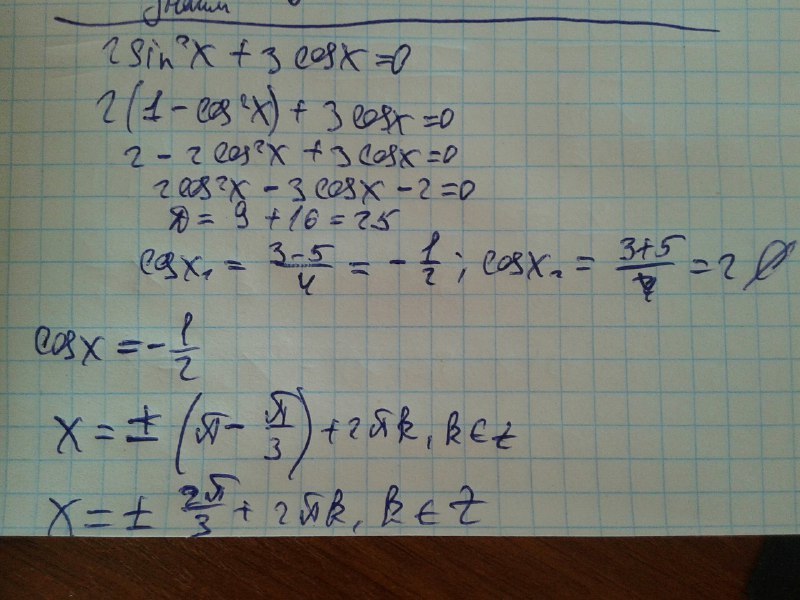 2sin²x + 3cosx = 0
2(1 - cos²x) + 3cosx = 0
2 - 2cos²x + 3cosx = 0
2cos²x - 3cosx - 2 = 0
D = 9 + 16 = 25
cosx₁ = (3-5)/4 = -1/2; cosx₂ = (3+5)/4 = 2 ∅
cosx = -1/2
x = ± (π - π/3) + 2πk, k ∈ z
x = ± 2π/3 + 2πk, k ∈ Z